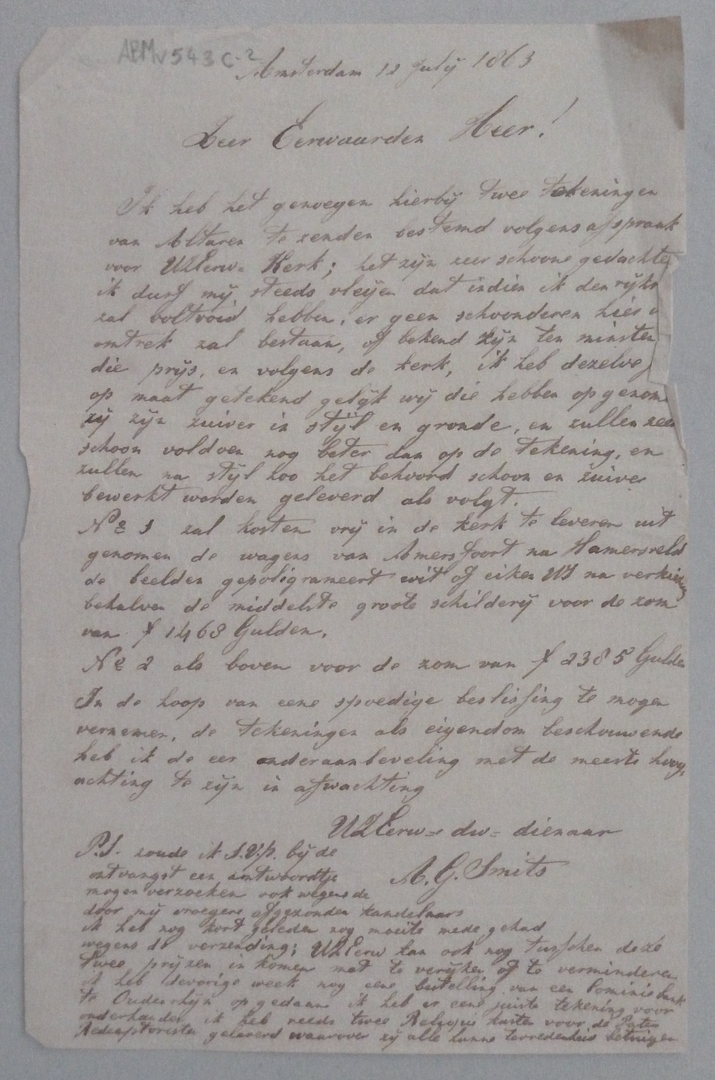 ABMv543C-2
Amsterdam 12 July 1863
Zeer Eerwaarden Heer!
Ik heb het genoegen hierbij twee tekeningen
van Altaren te zenden bestemd volgens afspraak
voor UZEerw= Kerk; het zijn zeer schoone gedachten
ik durf mij steeds vleijen dat indien ik den
zal voltooid hebben, er geen schoonderen hier
omtrek zal bestaan, of bekend zijn ten minsten
die prijs, en volgens de kerk, ik heb dezelve
op maat getekend gelijk wij die hebben opgenom
zij zijn zuiver in stijl en gronde, en zullen zeer
schoon voldoen nog beter dan op de tekening, en
zullen na stijl zoo het behoord schoon en zuiver
bewerkt worden geleverd als volgt.
No 1 zal kosten vrij in de kerk te leveren uit
genomen de wagens van Amersfoort na Hamersveld
de beelden gepoligrameert wit of eiken na
behalven de middelste groote schilderij voor de zom
van f 1468 Gulden.
No 2 als boven voor de zom van f 2385 Gulden
In de hoop van eene spoedige beslissing te mogen
vernemen, de tekeningen als eigendom beschouwende
heb ik de eer onderaanbeveling met de meeste hoog
achting te zijn in afwachting
UZEerw= dw= dienaar
A. G. Smits
P.S. zoude ik S.V.P. bij de
ontvangst een antwoordtje
mogen verzoeken ook wegens de
door mij vroegere afgezonden kandelaars
ik heb nog kort geleden nog moeite mede gehad
wegens de verzending; UZEerw kan ook nog tusschen deze
twee prijzen in komen met te verijken of te verminderen
ik heb de vorige week nog eene bestelling van een
te Ouderhijn op gedaan ik heb er eene juiste tekening voor
onderhanden ik heb reeds twee kasten voor de Paters
Redemptoristen geleverd waarover zij alle hunne tevredenheid betuigen